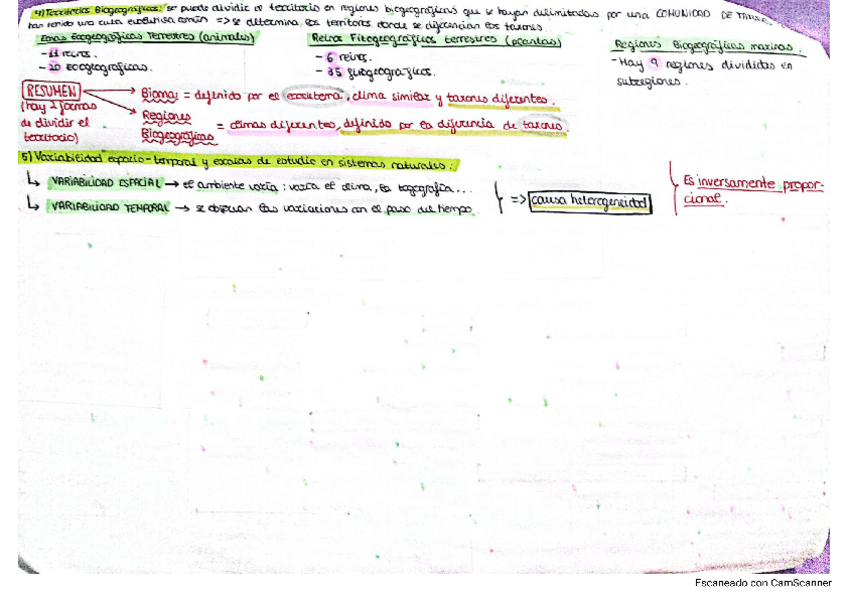 4) Territorios Biogeográficos: se puede dividir el territorio en regiones biogeográficas que se hayan delimitadas por una COMUNIDAD DE
han tenido una evolutiva común => se determina los territorios donde se diferencian los taxones
Zonas Zoogeográficas Terrestres (animales)
- 11 reinos.
- 20 zoogeográficas.
Reinos Fitogeográficos terrestres (plantas)
- 6 reinos.
- 35 fitogeográficos.
Regiones Biogeográficas marinas.
- Hay 9 regiones divididas en
subregiones.
RESUMEN
(hay 2 formas
de dividir el
territorio)
Bioma = definido por el ecosistema, clima similar y taxones diferentes.
Regiones
Biogeográficas = climas diferentes, definido por la diferencia de taxones.
5) Variabilidad espacio-temporal y escalas de estudio en sistemas naturales:
↳ VARIABILIDAD ESPACIAL → el ambiente varía: varía el clima, la topografía...
↳ VARIABILIDAD TEMPORAL → se observan las variaciones con el paso del tiempo.
=> causa heterogeneidad
Es inversamente propor-
cional.
Escaneado con CamScanner